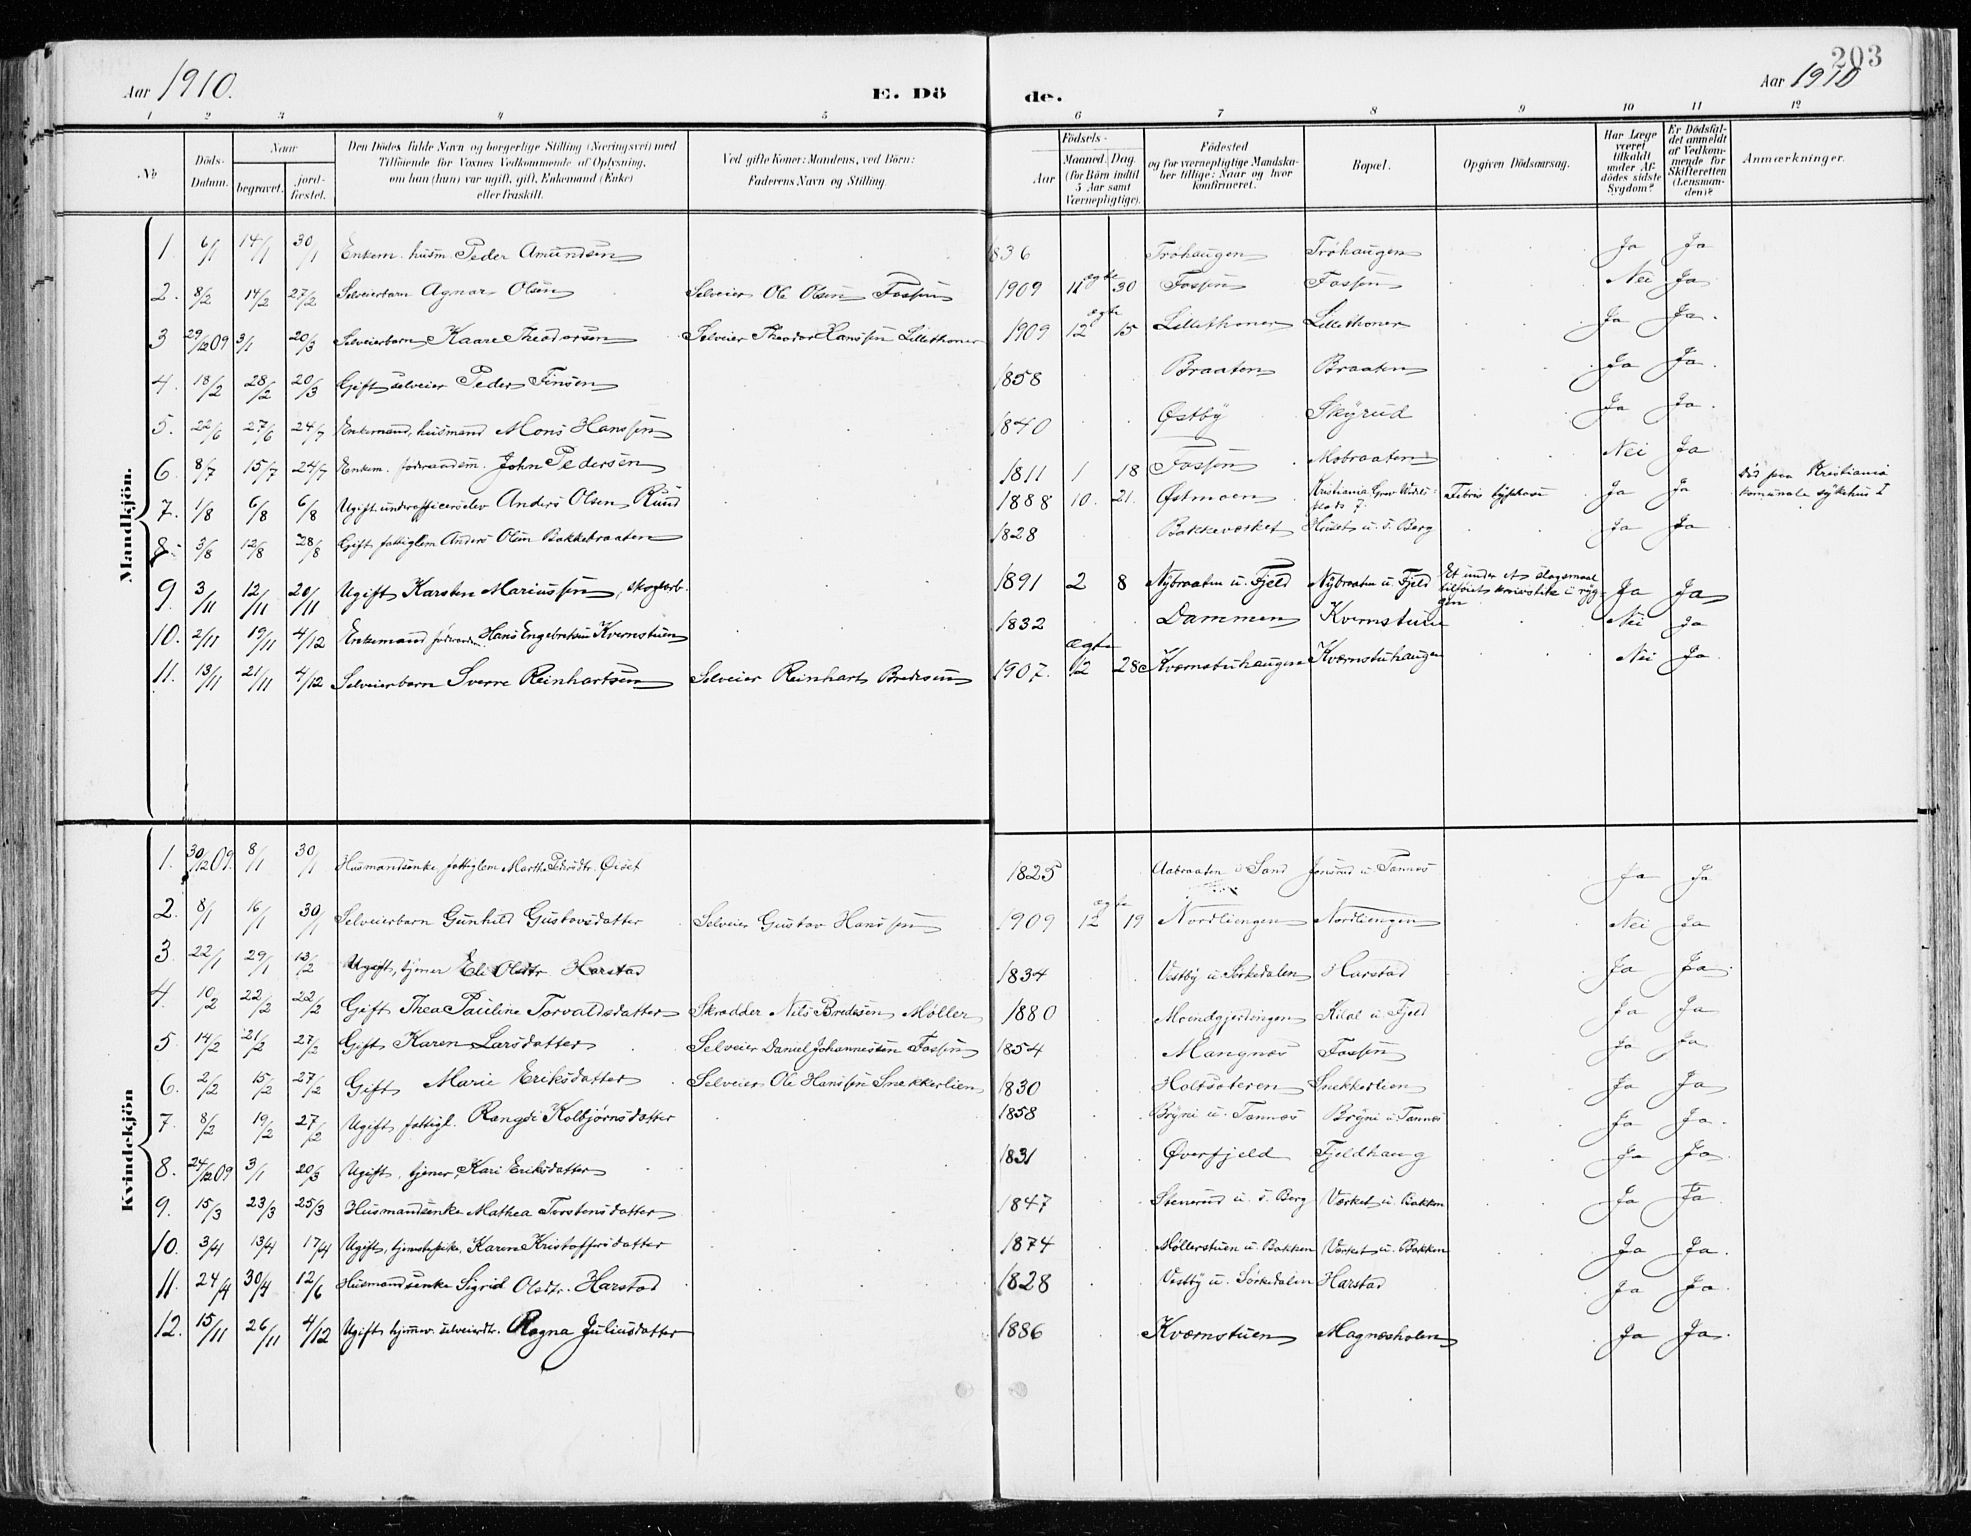 203
Aar 1910. E. Dö de. Aar 1910
1 2 3 4 5 6 7 8 9 10 11 12
No Döds-Datum. Naar begravet. jord-fæstet. Den Dödes fulde Navn og borgerlige Stilling (Næringsvei) med Tilföiende for Voxnes Vedkommende af Oplysning, om han (hun) var ugift, gift, Enkemand (Enke) eller fraskilt. Ved gifte Koner: Mandens, ved Börn: Faderens Navn og Stilling. Födsels- Aar Maaned. Dag. (for Börn indtil 5 Aar samt Værnepligtige). Födested og for værnepligtige Mandskaber tillige: Naar og hvor konfirmeret. Bopæl. Opgiven Dödsaarsag. Har Læge været tilkaldt under Afdödes sidste Sygdom? Er Dödsfaldet anmeldt af Vedkommende for Skifteretten (Lensmanden)? Anmærkninger.
Mandkjön.
1 6/1 14/1 30/1 Enkem. husm. Peder Amundsen 1836 Tröhaugen Tröhaugen Ja Ja
2. 8/2 14/2 27/2 Selveierbarn Agnar Olsen Selveier Ole Olsen Fossen 1909 11 ægte 30 Fossen Fossen Nei Ja
3 29/12 09 3/1 20/3 Selveierbarn Kaare Theodorsen Selveier Theodor Hanssen Lillethoner 1909 12 ægte 15 Lillethoner Lillethoner Ja Ja.
4. 18/2 28/2 20/3 Gift selveier Peder Finsen 1858 Braaten Braaten Ja Ja.
5. 22/6 27/6 24/7 Enkemand, husmand Mons Hanssen 1840 Østby Skyrud Ja Ja.
6 8/7 15/7 24/7 Enkem. föderaadsm. John Pedersen 1811 1 18 Fossen Mobraaten Nei Ja
7. 1/8 6/8 6/8 Ugift underofficerselev Anders Olsen Rund 1888 10. 21. Østmoen Kristiania Grev Wedels plads 7. Febris typhosa Ja Ja Död paa Kristiania komunale sykehus I
8. 3/8 12/8 28/8 Gift fattiglem Anders Olsen Bakkebraaten 1828 Bakkeværket Huset u. S. Berg Ja Ja
9. 3/11 12/11 20/11 Ugift Karsten Mariussen, skogarb. 1891 2 8 Nybraaten u. Fjeld Nybraaten u Fjeld Et under et slagsmaal tilföiet knivstik i ryggen Ja Ja
10. 2/11 19/11 4/12 Enkemand föderaadsm. Hans Engebretsen Kvernstuen 1832 Dammen Kvernstuen Nei Ja
11. 13/11 21/11 4/12 Selveierbarn Sverre Reinhartsen Selveier Reinhart Bredesen 1907. ægte 12 28 Kværnstuhaugen Kværnstuhaugen Nei Ja
Kvindekjön
1. 30/12 09. 8/1 30/1 Husmandsenke, fattiglem Marthe Pedersdtr. Öiset 1825 Aabraaten i Sand Jonsrud u. Tannes Ja Ja
2. 8/1 16/1 30/1 Selveierbarn Gunhild Gustavsdatter Selveier Gustav Hanssen 1909 ægte 12 19 Nordliengen Nordliengen Nei Ja
3. 22/1 29/1 13/2 Ugift, tjener Eli Olsdtr Harstad 1834 Vestby u. Sörkedalen Harstad Ja Ja
4. 10/2 22/2 22/2 Gift Thea Pauline Torvaldsdatter Skrædder Nils Bredesen Møller 1880 Moendgjerdingen Kilal u Fjeld Ja Ja
5. 14/2 21/2 27/2 Gift Karen Larsdatter Selveier Daniel Johannessen Fossen 1854 Mangnæs Fossen Ja Ja
6. 2/2 15/2 27/2 Gift Marie Eriksdatter Selveier Ole Hanssen Snekkerlien 1830 Holtsæteren Snekkerlien Ja Ja
7. 8/2 19/2 27/2 Ugift fattigl. Rangdi Kolbjørnsdatter 1858 Bryni u. Tannes Bryni u. Tannes Ja Ja.
8. 24/12 09 3/1 20/3 Ugift, tjener, Kari Eriksdatter 1831 Øverfjeld Fjeldhaug Ja Ja.
9. 15/3 23/3 25/3 Husmandsenke Mathea Torstensdatter 1847 Stenerud u. S. Berg Værket u. Bakken Ja Ja
10. 3/4 13/4 17/4 Ugift, tjenestepike, Karen Kristoffersdatter 1874 Møllerstuen u. Bakken Værket u. Bakken Ja Ja.
11. 24/4 30/4 12/6 Husmandsenke Sigrid Olsdtr. Harstad 1828 Vestby u. Sörkedalen Harstad Ja Ja.
12. 15/11 26/11 4/12 Ugift tjener. selveierdtr. Ragna Juliusdatter 1886 Kværnstuen Magnesholen Ja Ja.